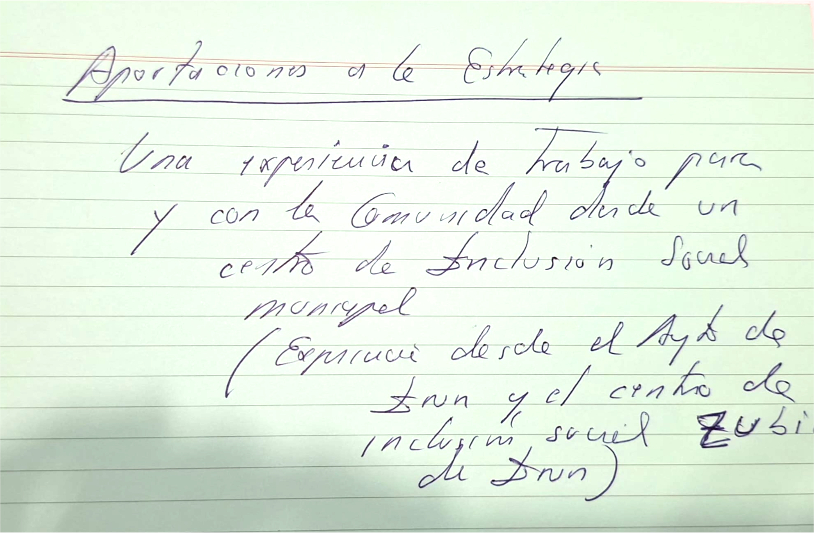 Aportaciones a la Estrategia
Una experiencia de Trabajo para
y con la Comunidad desde un
centro de Inclusión Social
municipal
(Experiencia desde el Ayto de
Irun y el centro de
inclusión social Zubi
de Irun)